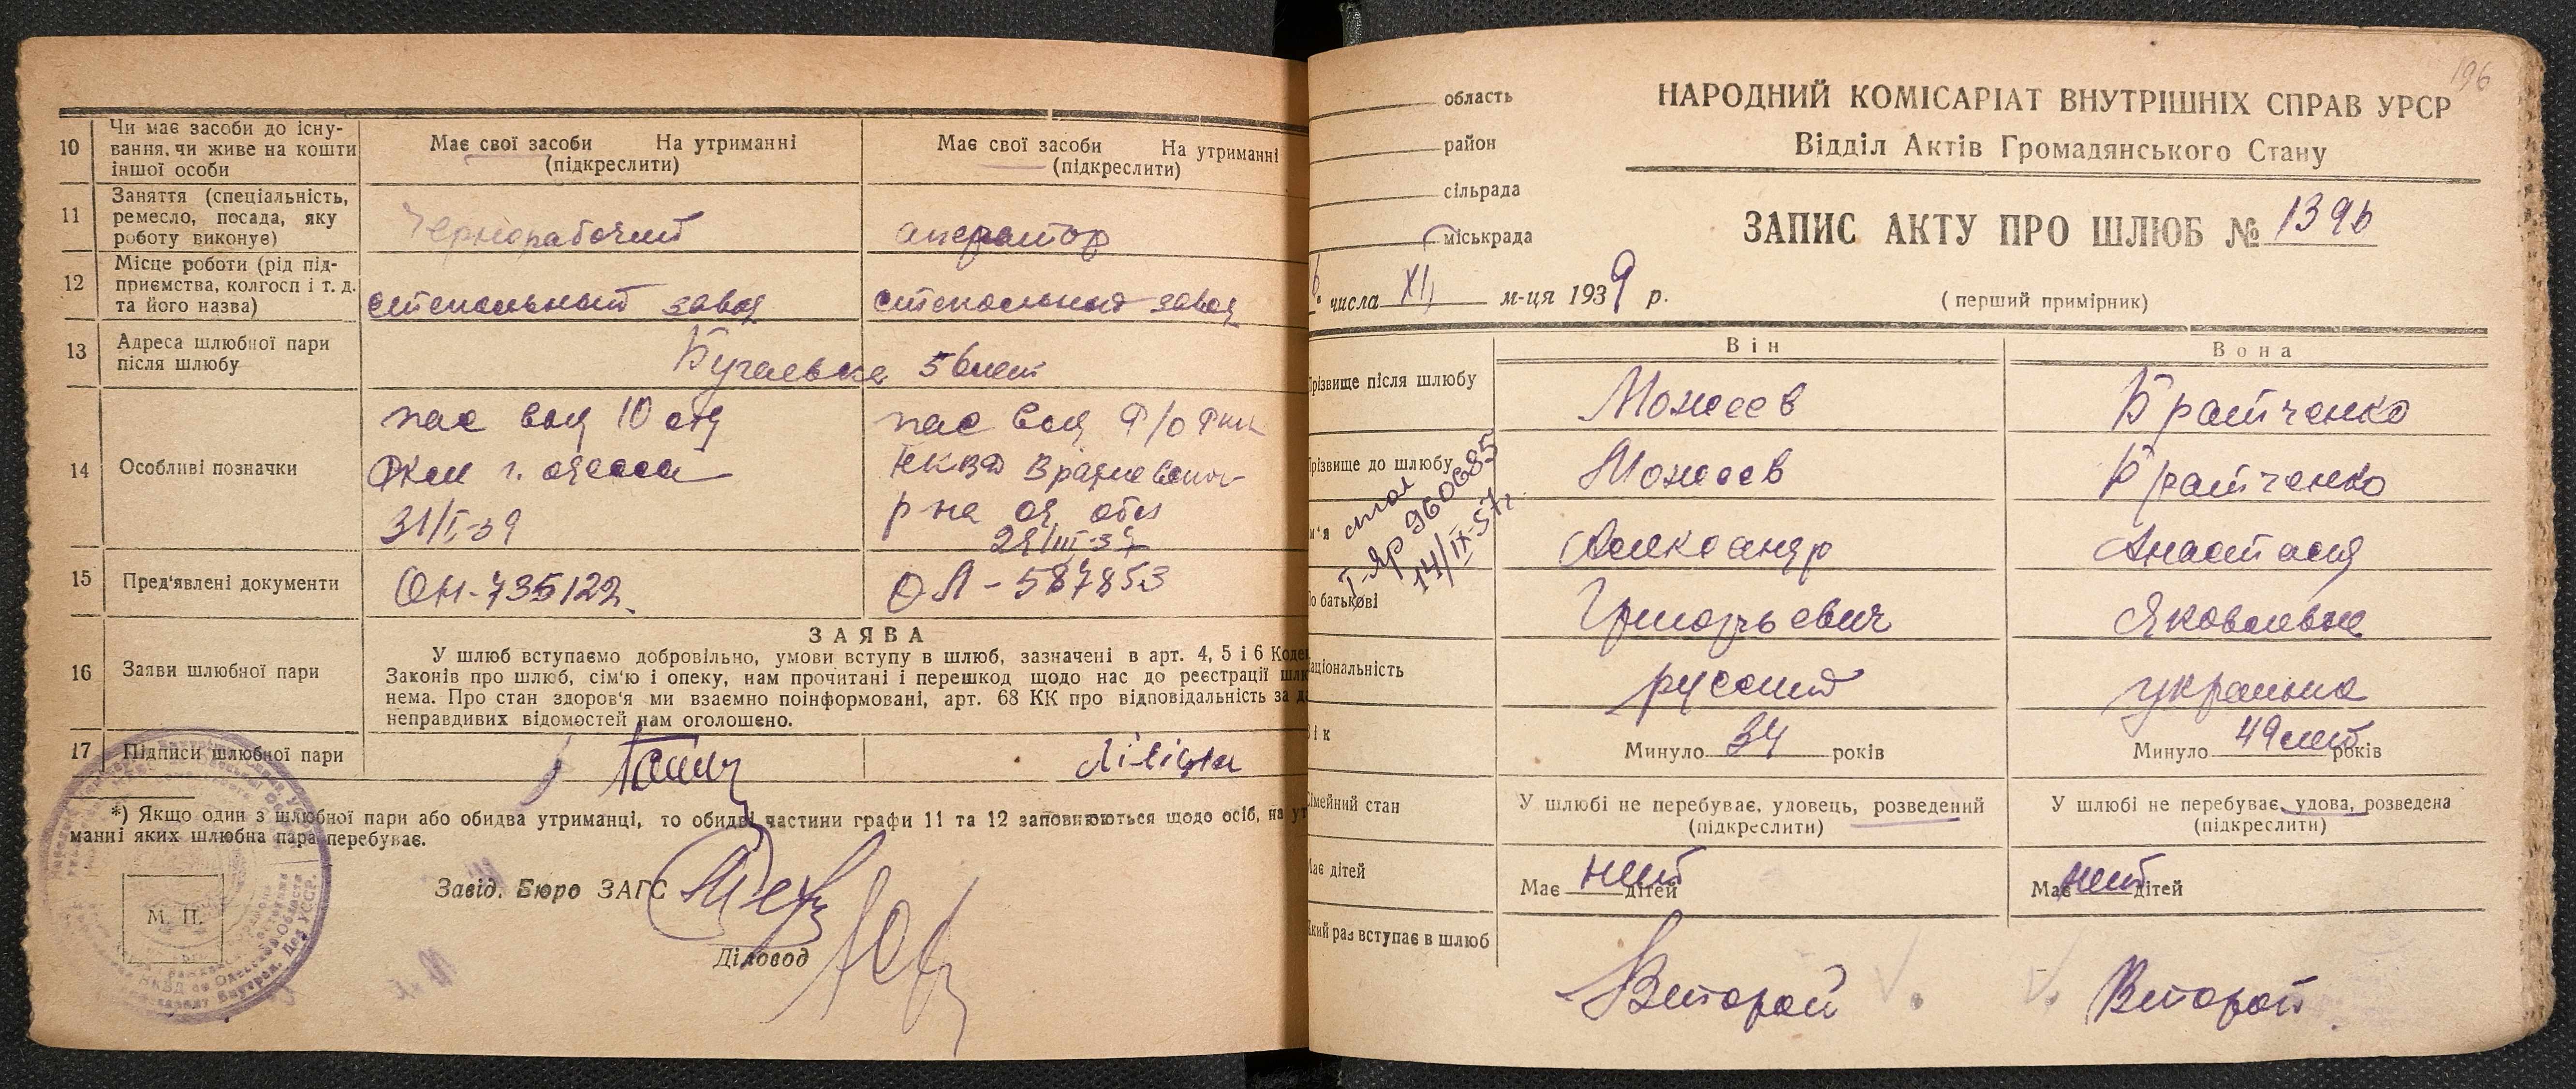 10
Чи має засоби до існу-
вання, чи живе на кошти
іншої особи
Має свої засоби На утриманні
(підкреслити)
Має свої засоби На утриманні
(підкреслити)
11
Заняття (спеціальність,
ремесло, посада, яку
роботу виконує)
Чернорабочий
оператор
12
Місце роботи (рід під-
приємства, колгосп і т. д.
та його назва)
стекольный завод
стекольный завод
13
Адреса шлюбної пари
після шлюбу
14
Особливі позначки
пас выд 10 отд
РКМ г. Одессы
31/I-39
пас выд Р/О РКМ
НКВД
р на од обл
15
Пред'явлені документи
ОН-735122
ОЛ-587853
16
Заяви шлюбної пари
ЗАЯВА
У шлюб вступаємо добровільно, умови вступу в шлюб, зазначені в арт. 4, 5 і 6
Законів про шлюб, сім'ю і опеку, нам прочитані і перешкод щодо нас до реєстрації
нема. Про стан здоров'я ми взаємно поінформовані, арт. 68 КК про відповідальність за
неправдивих відомостей нам оголошено.
17
Підписи шлюбної пари
*) Якщо один з шлюбної пари або обидва утриманці, то обидві частини графи 11 та 12 заповнюються щодо осіб, на
манні яких шлюбна пара перебуває.
Завід. Бюро ЗАГС
М. П.
Діловод
196
область
район
сільрада
міськрада
НАРОДНИЙ КОМІСАРІАТ ВНУТРІШНІХ СПРАВ УРСР
Відділ Актів Громадянського Стану
ЗАПИС АКТУ ПРО ШЛЮБ № 1396
6 числа XII м-ця 1939 р.
(перший примірник)
Він
Вона
Прізвище після шлюбу
Моисеев
Братченко
Прізвище до шлюбу
Моисеев
Братченко
Александр
Анастасия
I-ЯР 960685
14/IX-57г.
По батькові
Григорьевич
Яковлевна
Національність
русский
украинка
Вік
Минуло 34 років
Минуло 49 лет років
Сімейний стан
У шлюбі не перебуває, удовець, розведений
(підкреслити)
У шлюбі не перебуває, удова, розведена
(підкреслити)
Має дітей
Має нет дітей
Має нет дітей
Який раз вступає в шлюб
Второй
Второй